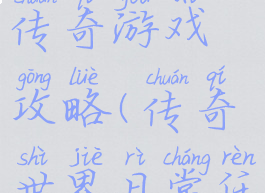 chuán qí yóu xì
传奇游戏
gōng lüè chuán qí
攻略(传奇
shì jiè rì cháng rèn
世界日常任